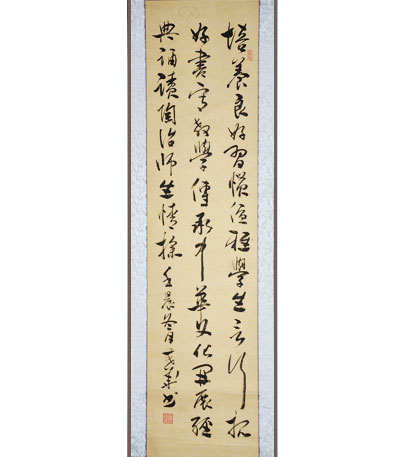 培養良好習慣雅學生言行抓
好書寫教學傳承中華文化開展經
典誦讀陶冶師生情操壬辰冬月華書